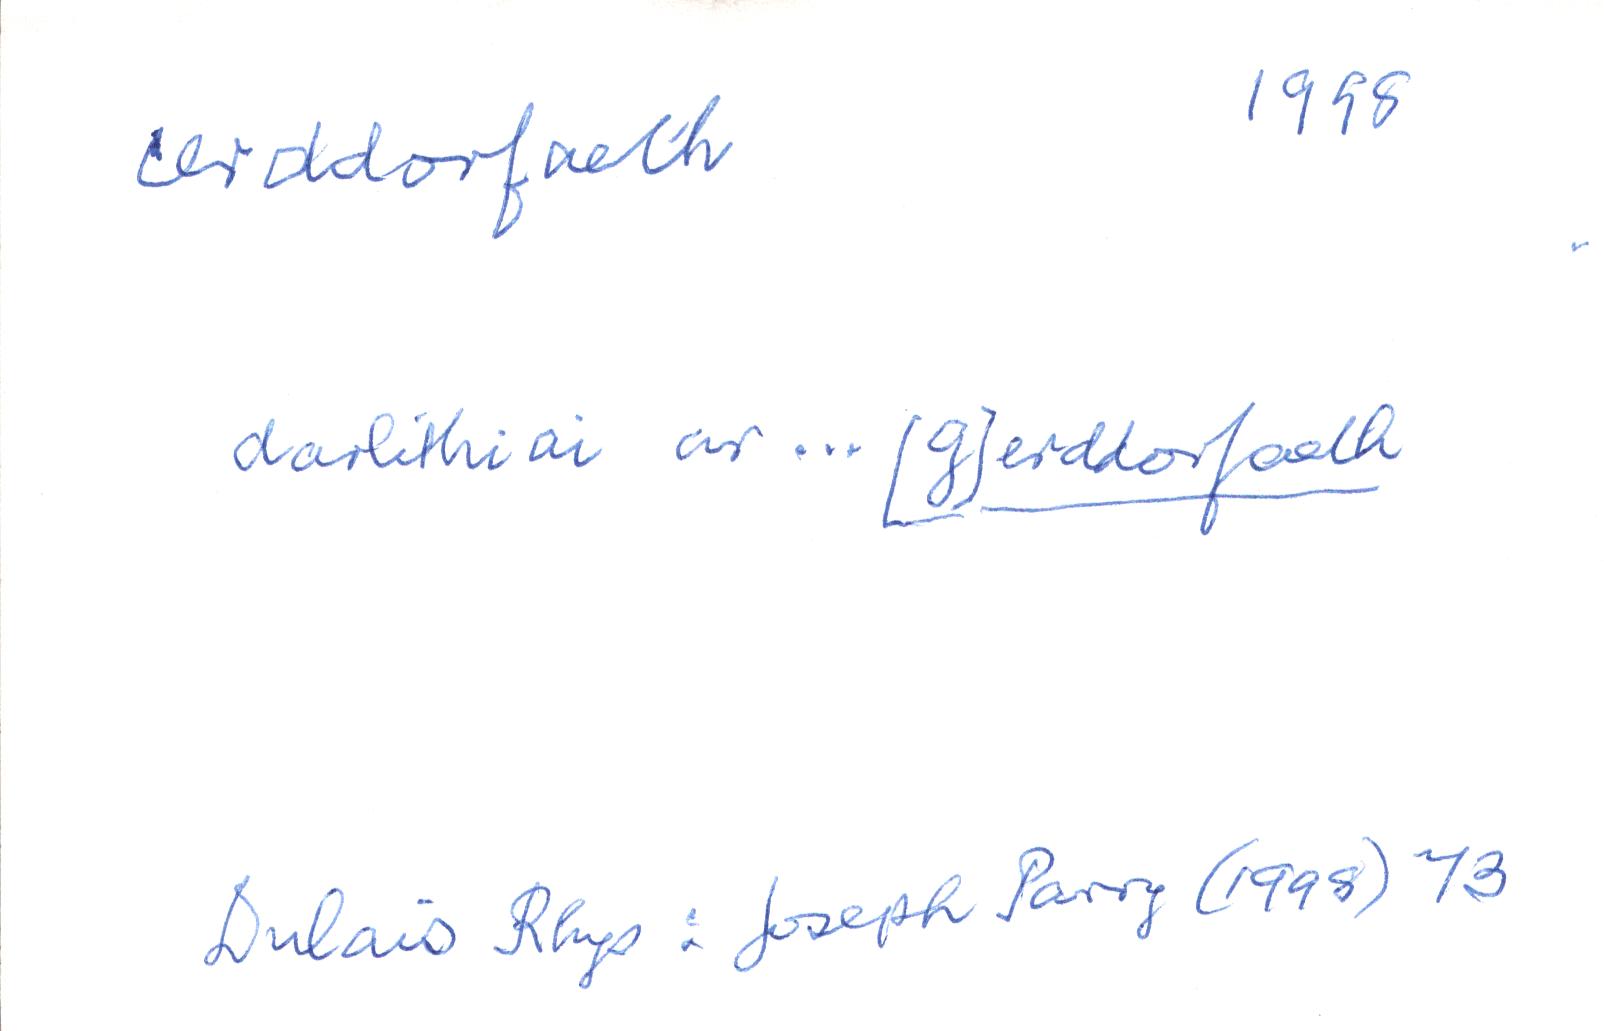 cerddorfaeth 1998
darlithiai ar ... [g]erddorfaeth
Dulais Rhys : Joseph Parry (1998) 73